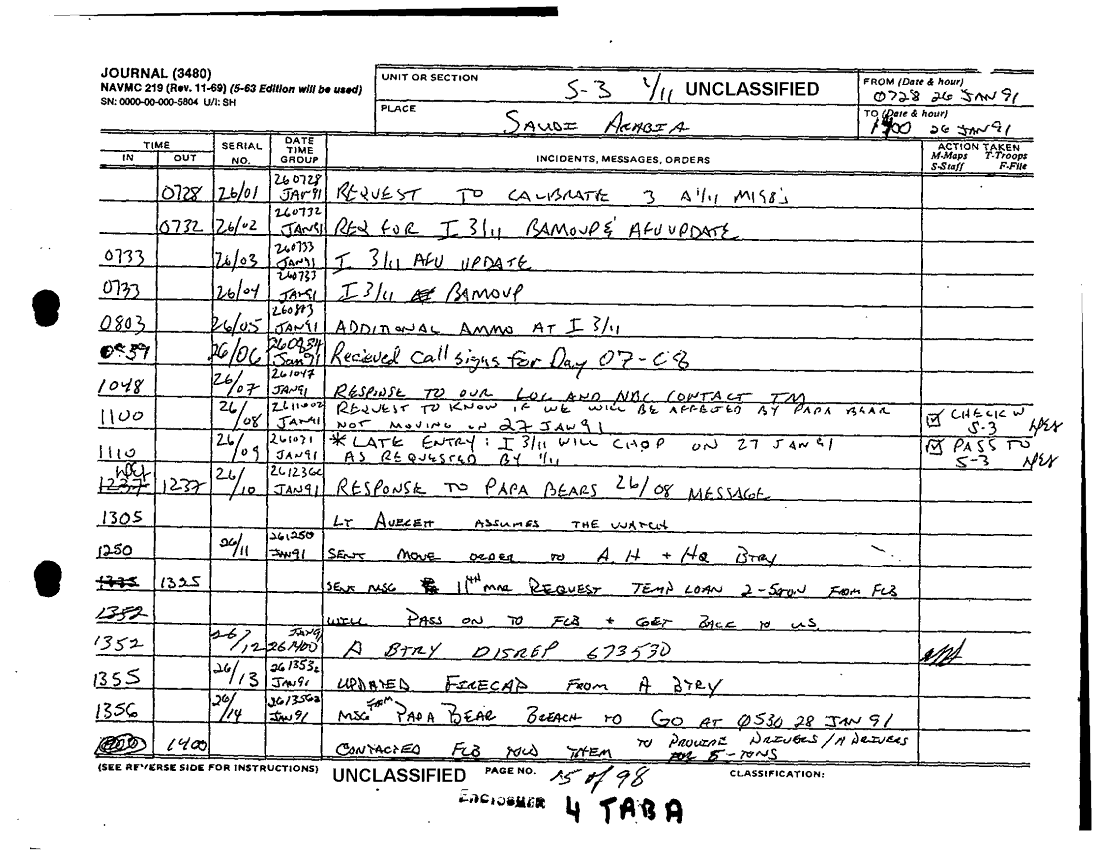 JOURNAL (3480)
NAVMC 219 (Rev. 11-69) (5-63 Edition will be used)
SN: 0000-00-000-5804 U/I: SH
UNIT OR SECTION
S-3 1/11 UNCLASSIFIED
PLACE
SAUDI ARABIA
FROM (Date & hour)
0728 26 JAN 91
TO (Date & hour)
1400 26 JAN 91
TIME
IN OUT
SERIAL NO.
DATE TIME GROUP
INCIDENTS, MESSAGES, ORDERS
ACTION TAKEN
M-Maps T-Troops
S-Staff F-File
0728 26/01 260728 JAN 91 REQUEST TO CALIBRATE 3 A 1/11 M198's
0732 26/02 260732 JAN91 REQ FOR I 3/11 BAMOUP & AFU UPDATE
0733 26/03 260733 JAN91 I 3/11 AFU UPDATE
0733 26/04 260733 JAN91 I 3/11 BAMOUP
0803 26/05 260803 JAN91 ADDITIONAL AMMO AT I 3/11
26/06 Jan91 Recieved Call signs for Day 07-08
1048 26/07 261047 JAN91 RESPONSE TO OUR LOC AND NBC CONTACT TM
1100 26/08 261100Z JAN91 REQUEST TO KNOW IF WE WILL BE AFFECTED BY PAPA BEAR
NOT MOVING ON 27 JAN 91
CHECK W S-3
1110 26/09 261031 JAN91 *LATE ENTRY: I 3/11 WILL CHOP ON 27 JAN 91
AS REQUESTED BY 1/11
PASS TO S-3
1237 1237 26/10 261236Z JAN91 RESPONSE TO PAPA BEARS 26/08 MESSAGE
1305 LT ASSUMES THE WATCH
1250 26/11 261250 JAN91 SENT MOVE ORDER TO A, H + HQ BTRY
1325 SENT MSG 11TH MAR REQUEST TEMP LOAN 2-5TON FROM FLB
1352 WILL PASS ON TO FLB + GET BACK TO US.
1352 26/12 JAN91 261400 A BTRY DISREP 673530
1355 26/13 261353Z JAN91 UPDATED FIRECAP FROM A BTRY
1356 26/14 261356Z JAN91 MSG FROM PAPA BEAR BREACH TO GO AT 0530 28 JAN 91
1400 CONTACTED FLB TOLD THEM TO PROVIDE DRIVERS/A DRIVERS
FOR 5-TONS
(SEE REVERSE SIDE FOR INSTRUCTIONS) UNCLASSIFIED PAGE NO. 15 of 98 CLASSIFICATION:
ENCLOSURE 4 TAB A